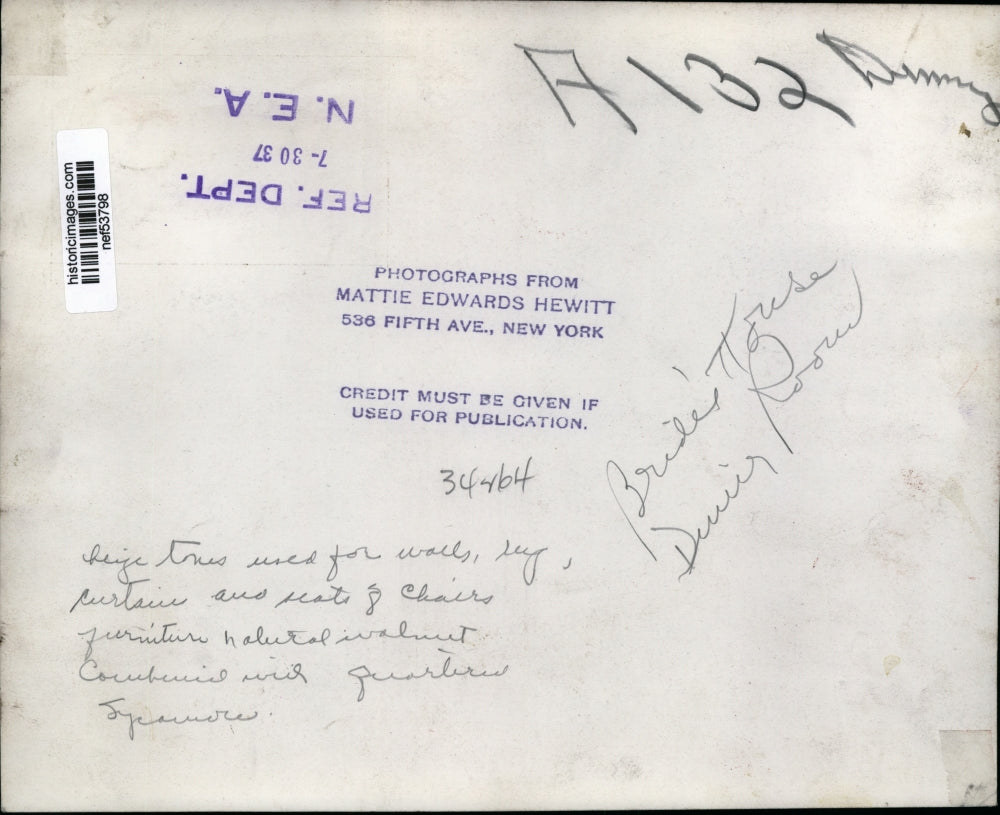 A 132 Dining
N.E.A.
7-30 37
REF. DEPT.
historicimages.com
nef53798
PHOTOGRAPHS FROM
MATTIE EDWARDS HEWITT
536 FIFTH AVE., NEW YORK
CREDIT MUST BE GIVEN IF
USED FOR PUBLICATION.
Bride's House
Dining Room
beige tones used for walls, rug,
curtains and seats of chairs
furniture natural walnut
Combined with quartered
Sycamore.